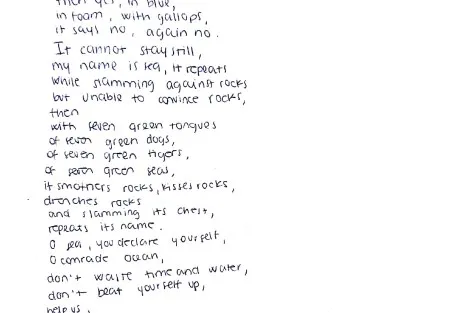 then yes, in blue,
in foam, with gallops,
it says no, again no.
It cannot stay still,
my name is sea, it repeats
while slamming against rocks
but unable to convince rocks,
then
with seven green tongues
of seven green dogs,
of seven green tigers,
of seven green seas,
it smothers rocks, kisses rocks,
drenches rocks
and slamming its chest,
repeats its name.
O sea, you declare yourself,
O comrade ocean,
don't waste time and water,
don't beat yourself up,
help us,